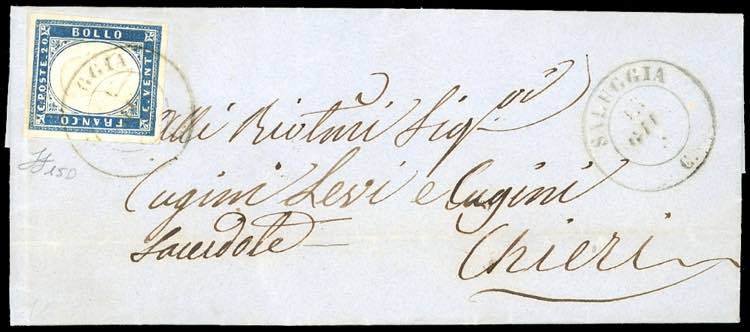 BOLLO
C. POSTE. 20
C. VENTI
FRANCO
GGIA
SALUGGIA
GIU
C.
Alli Riotiti Sig.ri
Cugini Levi e Cugini
Sacerdote
Chieri
15D